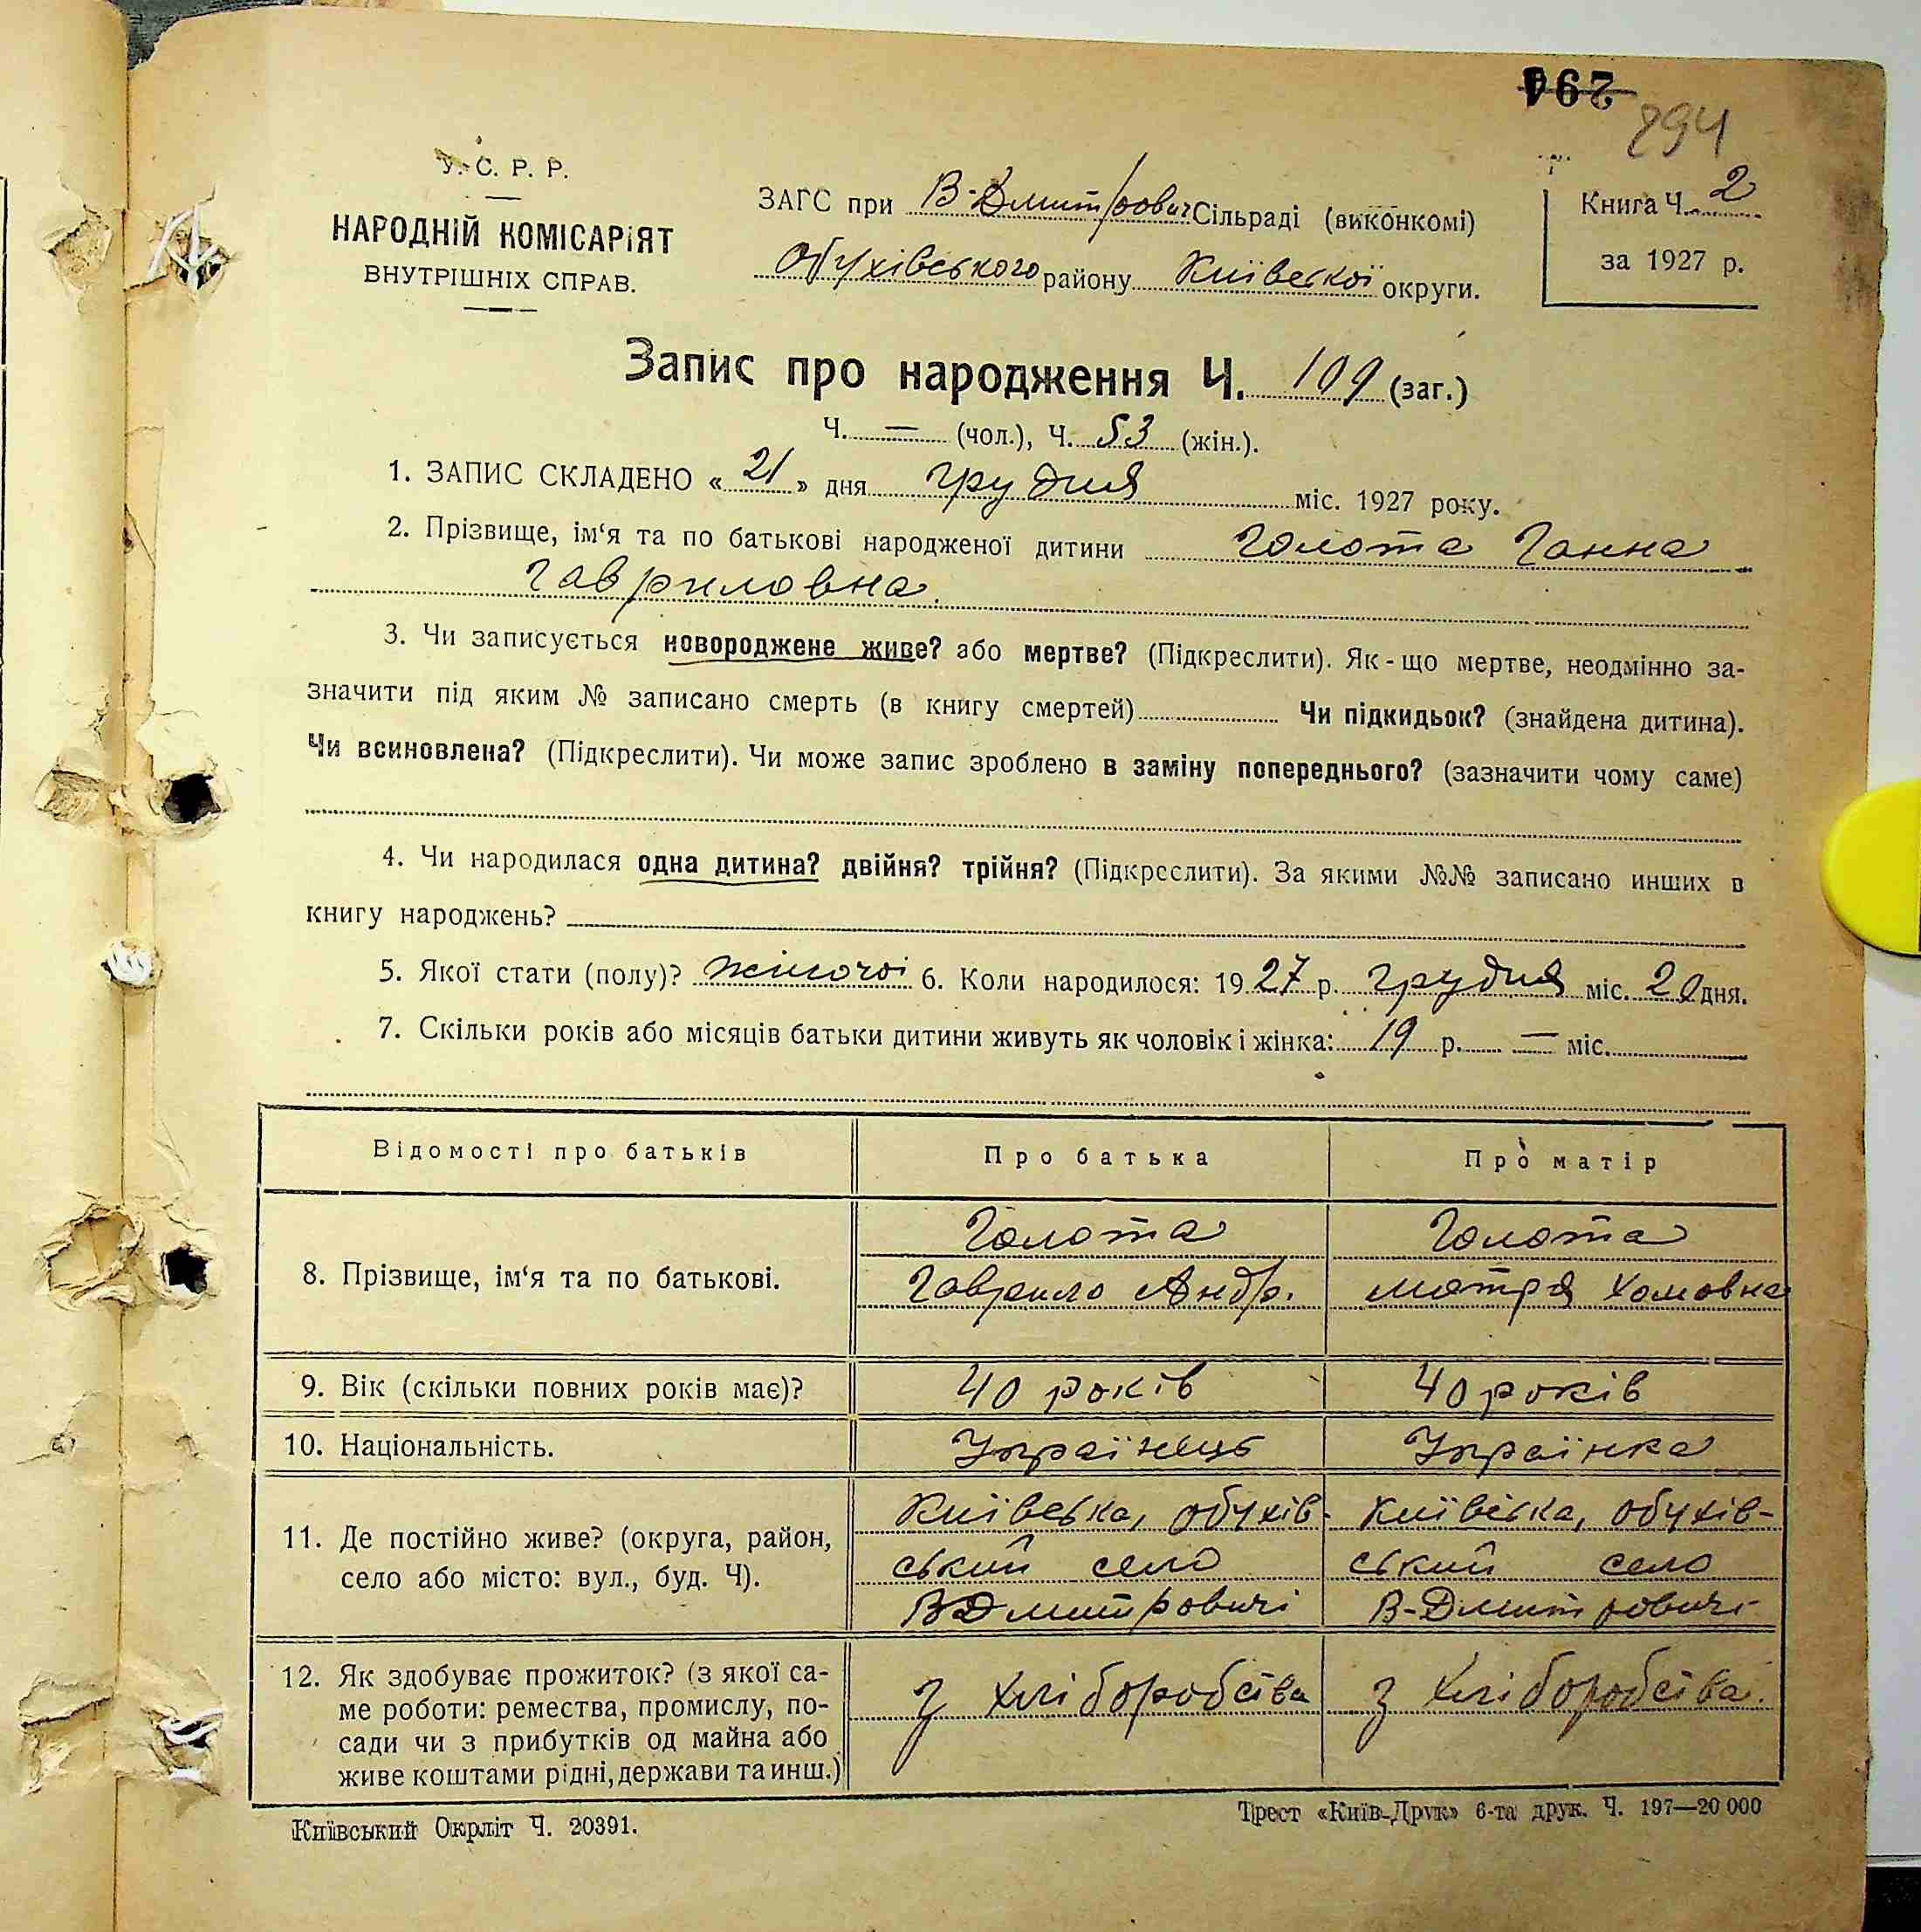 294
У. С. Р. Р.
НАРОДНІЙ КОМІСАРІЯТ
ВНУТРІШНІХ СПРАВ.
ЗАГС при В-Дмитрович Сільраді (виконкомі)
Обухівського району Київської округи.
Книга Ч. 2
за 1927 р.
Запис про народження Ч. 109 (заг.)
Ч. — (чол.), Ч. 53 (жін.).
1. ЗАПИС СКЛАДЕНО « 21 » дня грудня міс. 1927 року.
2. Прізвище, ім‘я та по батькові народженої дитини Голота Ганна
Гавриловна.
3. Чи записується новороджене живе? або мертве? (Підкреслити). Як-що мертве, неодмінно за-
значити під яким № записано смерть (в книгу смертей) Чи підкидьок? (знайдена дитина).
Чи всиновлена? (Підкреслити). Чи може запис зроблено в заміну попереднього? (зазначити чому саме)
4. Чи народилася одна дитина? двійня? трійня? (Підкреслити). За якими №№ записано инших в
книгу народжень?
5. Якої стати (полу)? жіночої 6. Коли народилося: 1927 р. грудня міс. 20 дня.
7. Скільки років або місяців батьки дитини живуть як чоловік і жінка: 19 р. — міс.
Відомості про батьків Про батька Про матір
8. Прізвище, ім‘я та по батькові.
Голота
Гаврило Андр.
Голота
Мотря Хомовна
9. Вік (скільки повних років має)? 40 років 40 років
10. Національність. Українець Українка
11. Де постійно живе? (округа, район,
село або місто: вул., буд. Ч).
Київська, обухів-
ський село
В Дмитровичі
Київська, обухів-
ський село
В-Дмитровичі
12. Як здобуває прожиток? (з якої са-
ме роботи: ремества, промислу, по-
сади чи з прибутків од майна або
живе коштами рідні, держави та инш.)
з хліборобства
з хліборобства.
Київський Окрліт Ч. 20391.
Трест «Київ-Друк» 6-та друк. Ч. 197—20 000